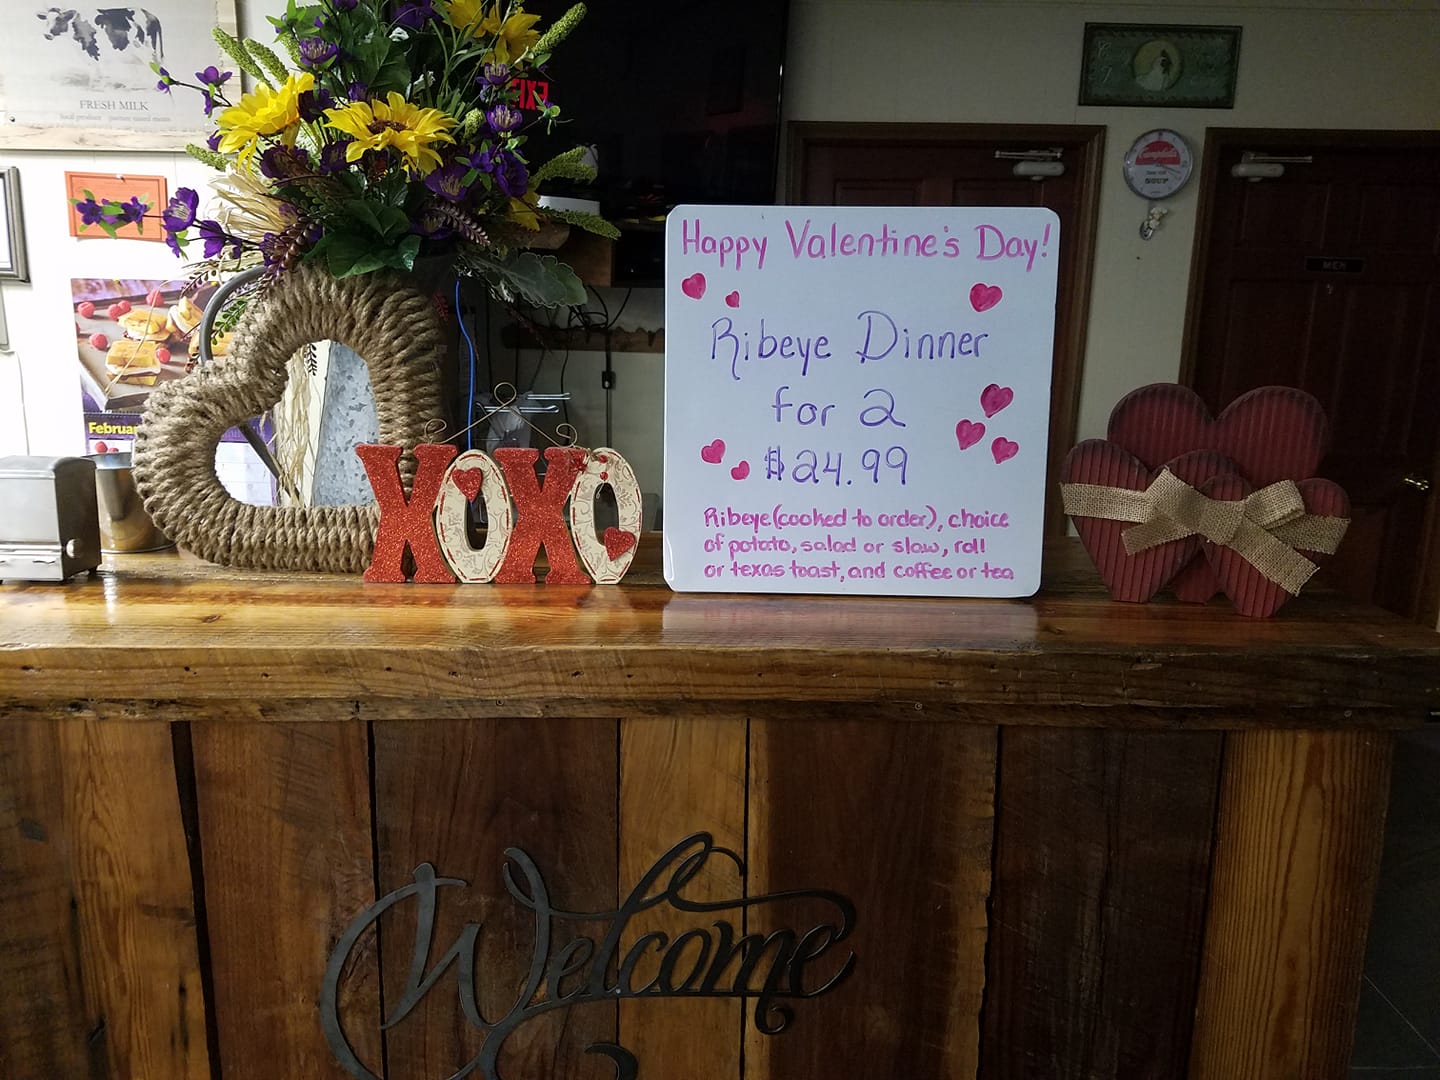 FRESH MILK
EXIT
Februar
XOXO
Happy Valentine's Day!
Ribeye Dinner
for 2
$24.99
Ribeye (cooked to order), choice
of potato, salad or slaw, roll
or texas toast, and coffee or tea
SOUP
MEN
Welcome